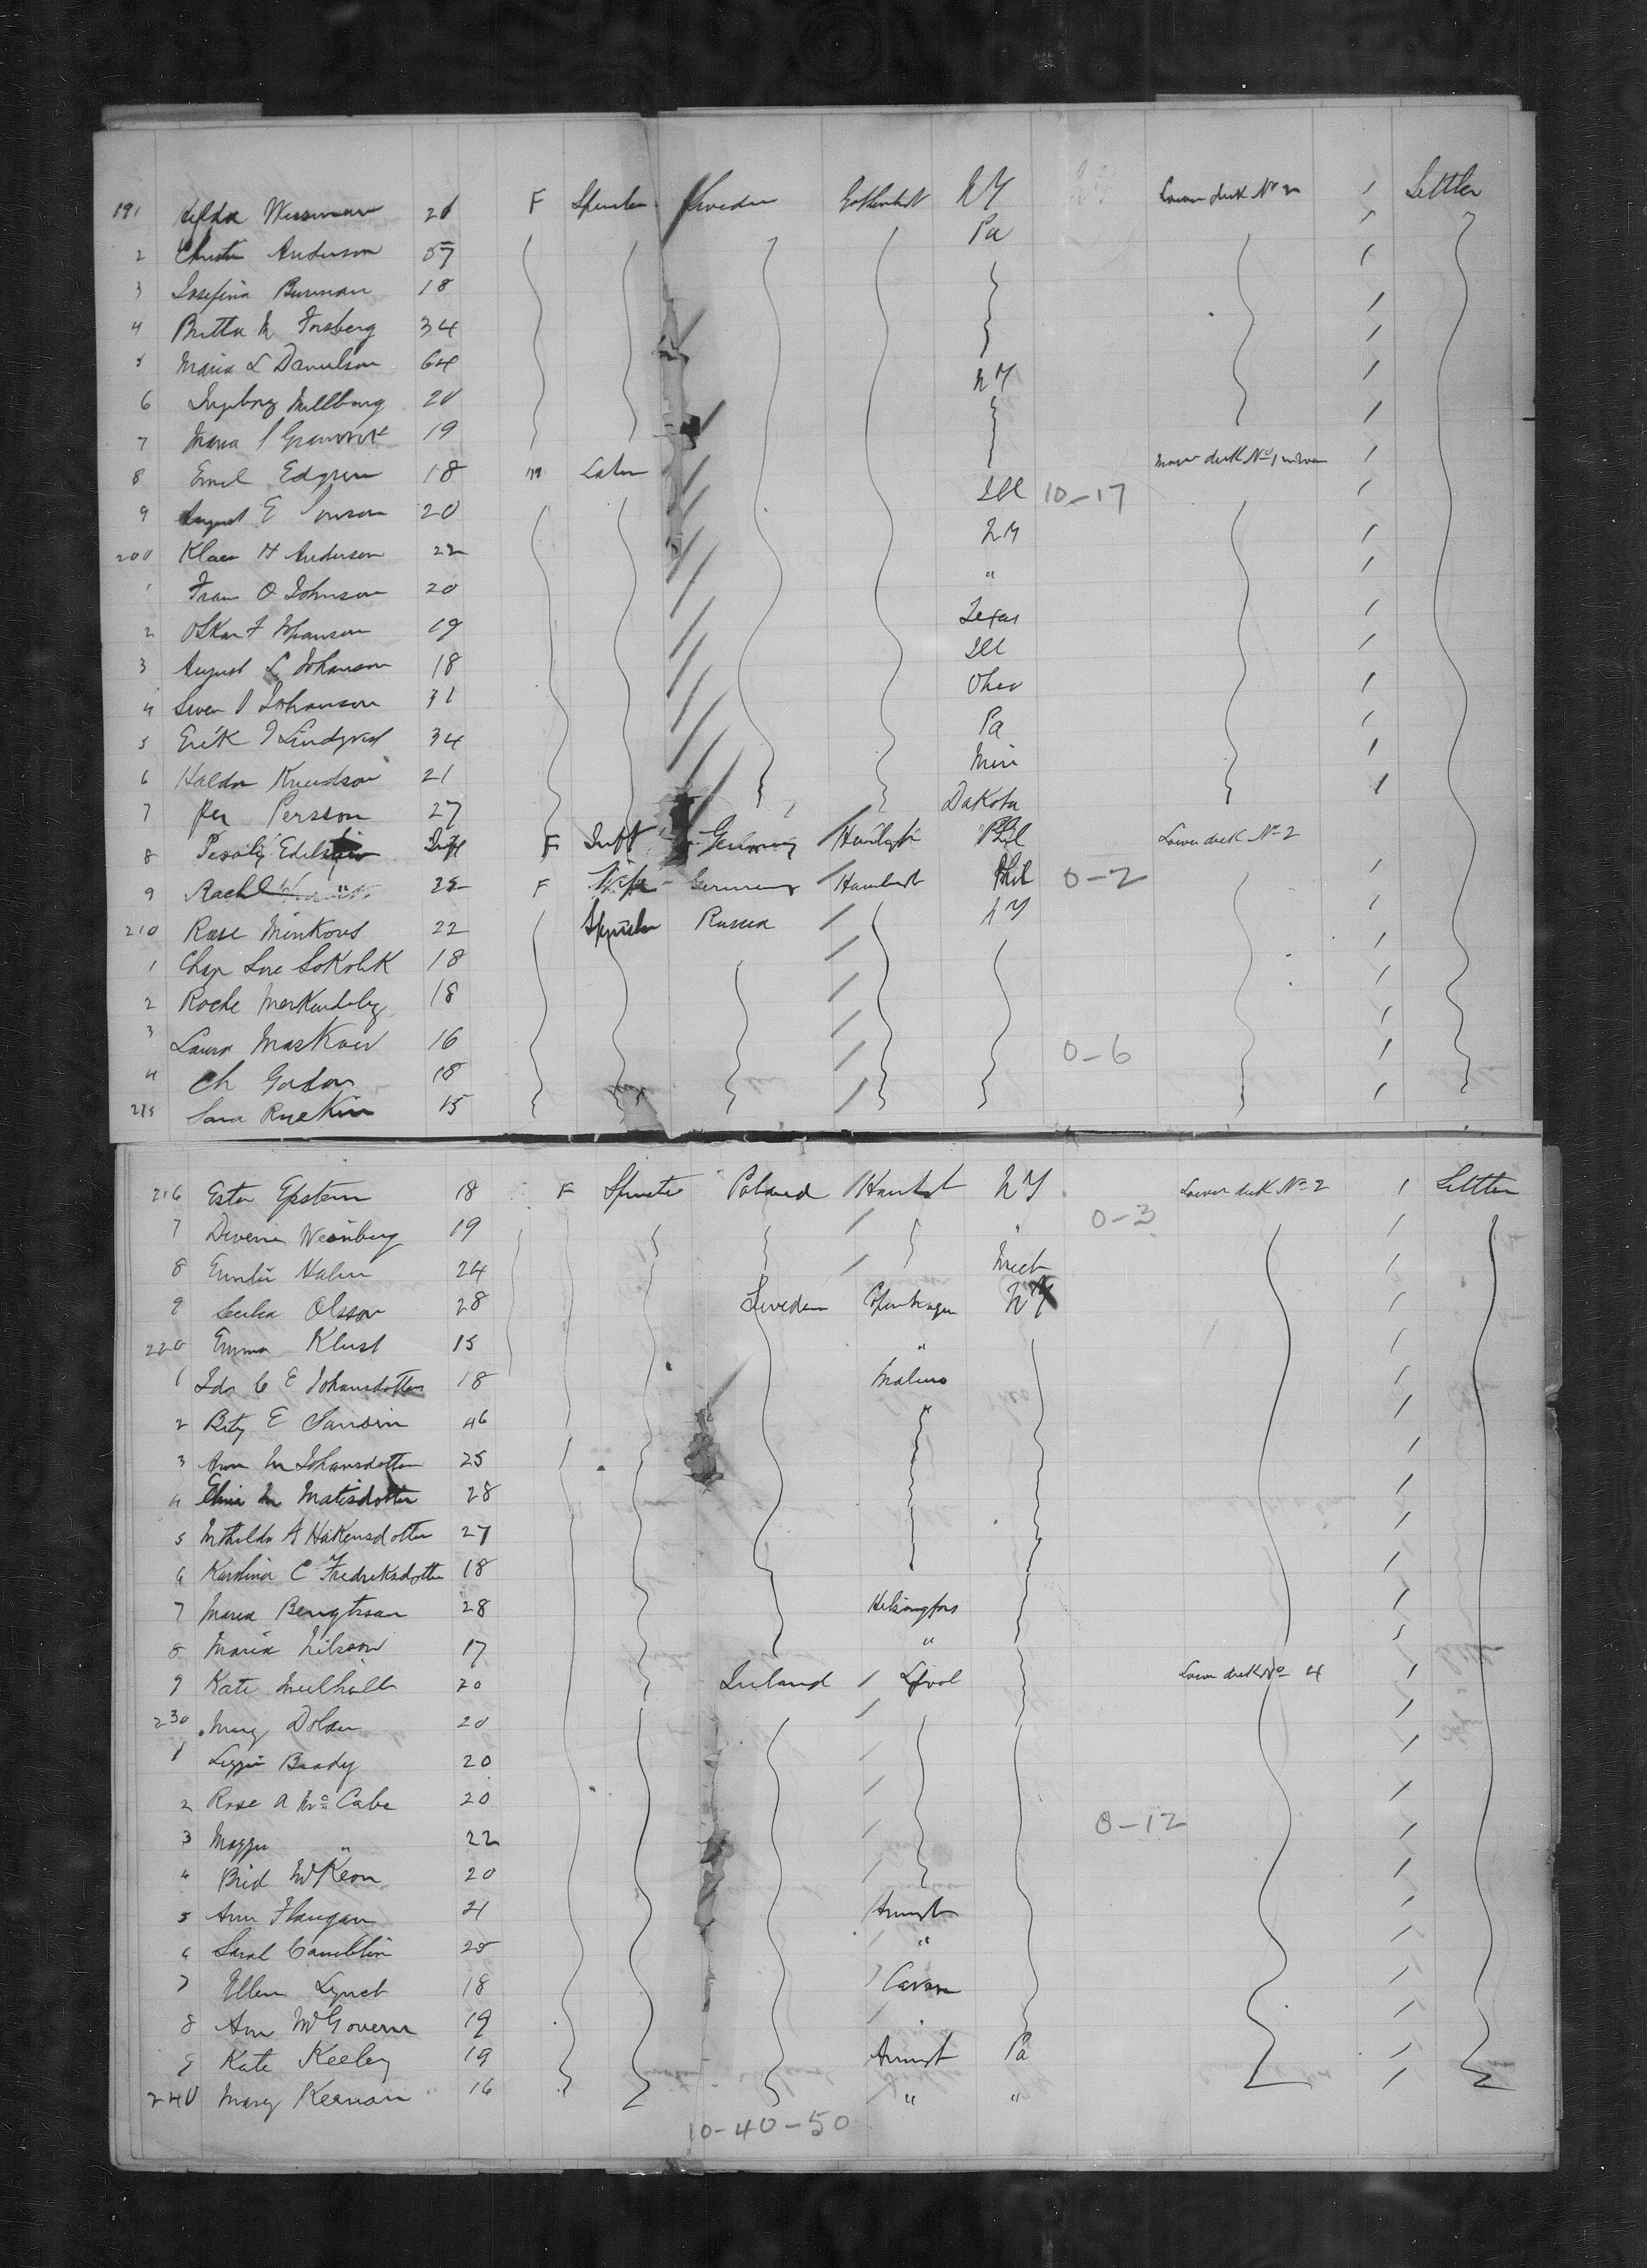 191 Hilda Wessman 26 F Spinster Sweden Gothenbg N Y Lower deck No 2 1 Settler
2 Christin Anderson 57 Pa 1
3 Josefina Burman 18 1
4 Britta M Forsberg 34 1
5 Maria L Danielson 64 1
6 Ingeborg Mellberg 20 N Y 1
7 Maria S 19 1
8 Emil Edgren 18 m Labr deck No 1 1
9 August E 20 Ill 10-17 1
200 Klaes H Anderson 22 N Y 1
1 Frans O Johnson 20 " 1
2 Oskar F Johanson 19 Texas 1
3 August L Johanson 18 Ill 1
4 Sven P Johanson 31 Ohio 1
5 Erik J Lindqvist 34 Pa 1
6 Haldor Knudson 21 Min 1
7 Per Persson 27 Dakota 1
8 Edelstein Inft F Inft Germany Hambg Phil Lower deck No 2
9 Rachl " 22 F Wife Germany Hambg Phil 0-2 1
210 Rose Minkows 22 Spinster Russia N Y 1
1 Chaje Sore Sokolik 18 1
2 Roche 18 1
3 Laura Maskow 16 1
4 Ch Gordon 18 0-6 1
215 Sara Ryekin 15 1
216 Ester Epstein 18 F Spinster Poland Hambg N Y Lower deck No 2 1 Settler
7 Weinberg 19 " 0-3 1
8 Emilie Halm 24 Mich 1
9 Cecilia Olsson 28 Sweden Copenhagen N Y 1
220 Emma Klust 15 " 1
1 Ida C E Johansdotter 18 Malmo 1
2 Bety E Sandin 46 " 1
3 Ann M Johansdotter 25 1
4 Elina M Matisdotter 28 1
5 Mthilda A Hakensdotter 27 1
6 Karolina C Fredriksdotter 18 1
7 Maria Bengtsson 28 Helsingfors 1
8 Maria Nilsson 17 " 1
9 Kate Mulhall 20 Ireland Lpool Lower deck No 4 1
230 Mary Dolan 20 1
1 Lizzie Brady 20 1
2 Rose A McCabe 20 1
3 Maggie " 22 0-12 1
4 Brid McKeon 20 1
5 Ann Flanigan 21 1
6 Sarah 25 " 1
7 Ellen Lynch 18 Cavan 1
8 Ann McGovern 19 1
9 Kate Keeley 19 Pa 1
240 Mary Kernan 16 " " 1
10-40-50